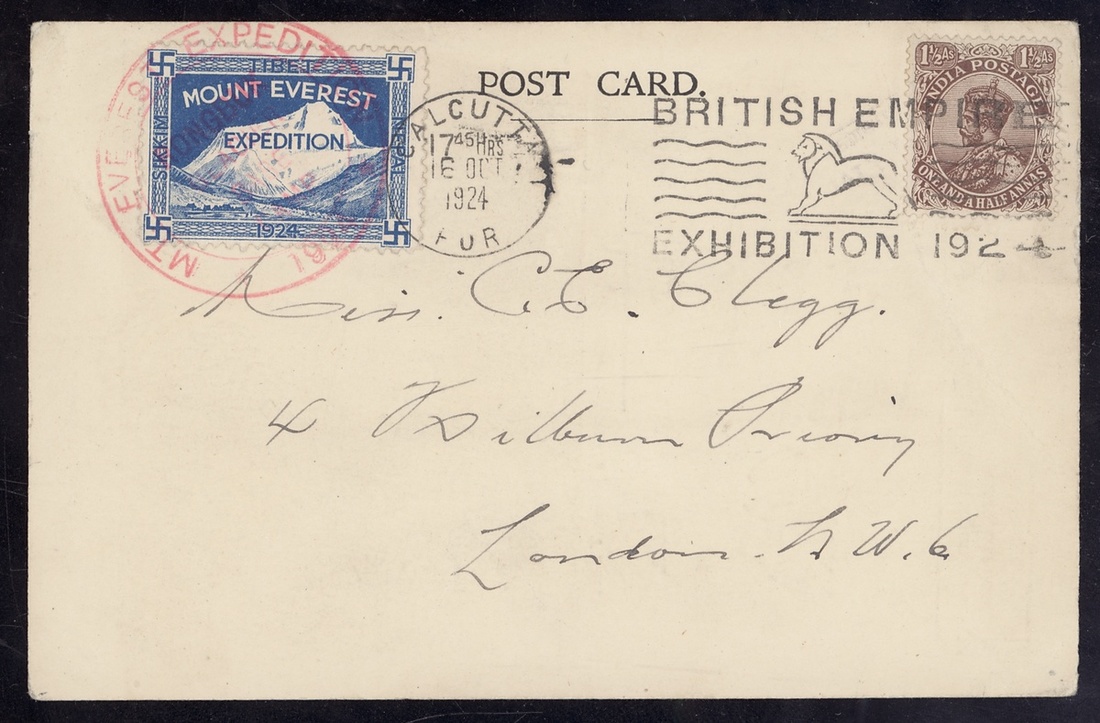 MT EVEREST EXPEDITION
TIBET
MOUNT EVEREST
EXPEDITION
SIKKIM
NEPAL
1924
POST CARD.
CALCUTTA
17 45 HRS
16 OCT
1924
BRITISH EMPIRE
EXHIBITION 1924
1½As 1½As
INDIA POSTAGE
ONE AND A HALF ANNAS
Miss. C. E. Clegg.
4 Kilburn Priory
London. N W. 6